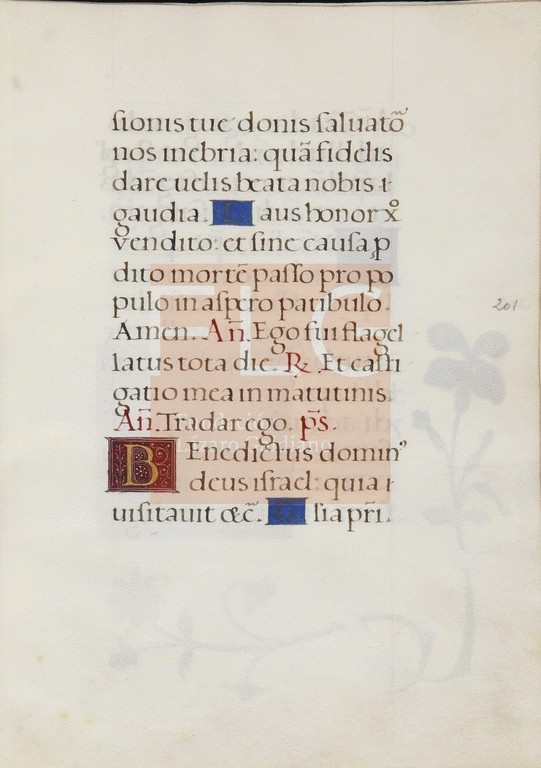 ſionis tue donis ſaluato&#772;r̃
nos inebria: quã fidelis
dare uelis beata nobis ⁊
gaudia. Laus honor xº
vendito: et ſine cauſa ꝓ
dito mortē paſſo pro po
pulo in aſpero patibulo.
Amen. Añ. Ego fui flagel
latus tota die. ℞. Et caſti
gatio mea in matutinis.
Añ. Tradar ego. p̄s.
BEnedictus dominꝰ
deus iſrael: quia ⁊
uiſitauit &c̃. ſia pr̃i.
201
FLG
Fundación
Lázaro Galdiano